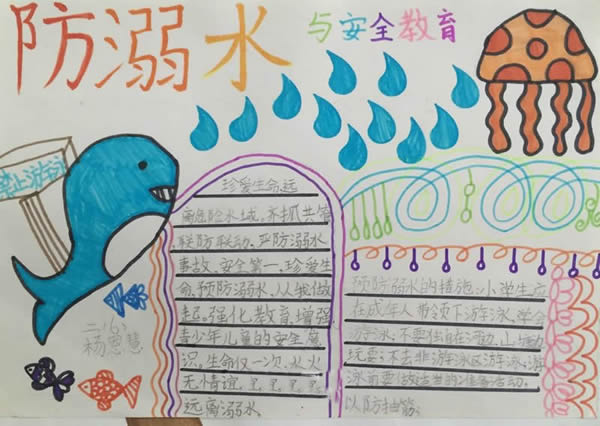 防溺水
与安全教育
禁止游泳
珍爱生命,远
离危险水域。齐抓共管
联防联动、严防溺水
事故、安全第一,珍爱生
命,预防溺水、从我做
起。强化教育,增强
青少年儿童的安全意
识。生命仅一次,水火
无情谊,
远离溺水。
预防溺水的措施:小学生应
在成年人带领下游泳、学会
游泳。不要独自在河边、山塘边
玩耍;不去非游泳区游泳,游
泳前要做适当的准备活动。
以防抽筋。
二、(6)
杨恩慧